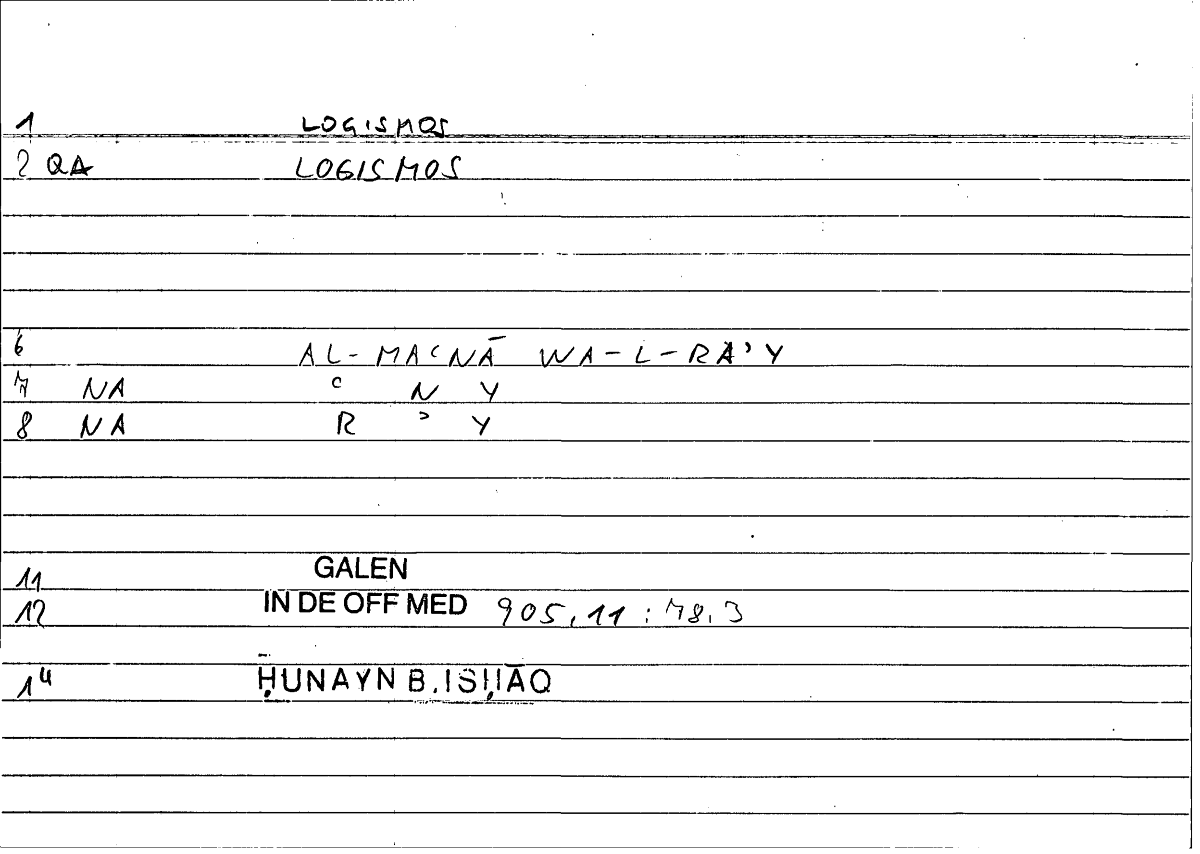 1 LOGISMOS
2 QA LOGISMOS
6 AL-MAʿNĀ WA-L-RAʾY
7 NA ʿ N Y
8 NA R ʾ Y
11 GALEN
12 IN DE OFF MED 905,11:78,3
14 ḤUNAYN B. ISḤĀQ